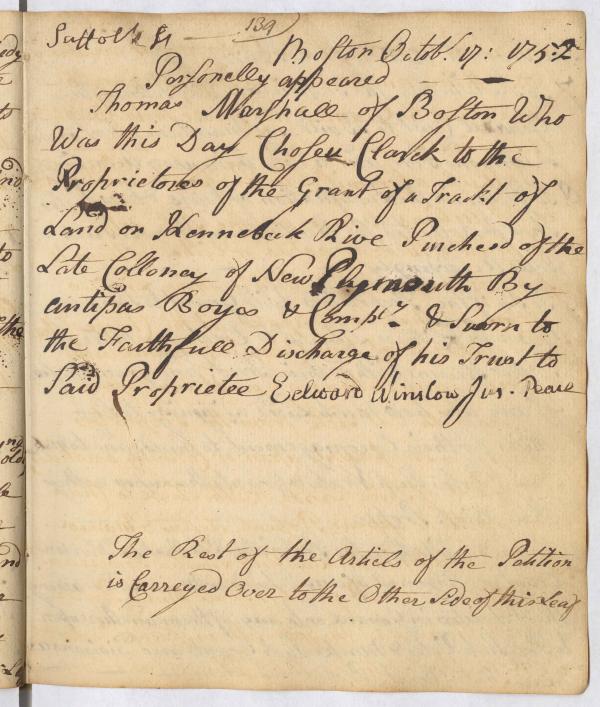 139
Suffolk Ss
Boston Octbr. 17: 1752
Personelly appeared
Thomas Marshall of Boston Who
Was this Day Chosen Clarck to the
Proprietores of the Grant of a Trackt of
Land on Kennebeck Rive Purchesd of the
Late Colloney of New Plymouth By
antipas Boyes & Compy. & Sworn to
the Faithfull Discharge of his Trust to
Said Proprietee Edward Winslow Jus. Peace
The Rest of the Articls of the Petition
is Carreyed Over to the Other Side of this Leaf